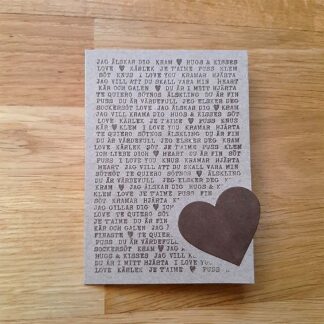 JAG ÄLSKAR DIG KRAM ♥ HUGS & KISSES
LOVE ♥ KÄRLEK JE T'AIME PUSS KLEM
SÖT KNUS I LOVE YOU KRAMAR HJÄRTA
JAG VILL ATT DU SKALL VARA MIN HEART
KÄR OCH GALEN ♥ DU ÄR I MITT HJÄRTA
TE QUIERO SÖTNOS ÄLSKLING DU ÄR FIN
PUSS DU ÄR VÄRDEFULL JEG ELSKER DEG
SOCKERSÖT LOVE JAG ÄLSKAR DIG KRAM ♥
JAG VILL KRAMA DIG HUGS & KISSES
LOVE KÄRLEK JE T'AIME PUSS KNUS
KÄR ♥ KLEM I LOVE YOU KRAMAR HJÄRTA
TE QUIERO SÖTNOS ÄLSKLING DU ÄR FIN
DU ÄR VÄRDEFULL JEG ELSKER DEG KRAM
LOVE KÄRLEK SÖT JE T'AIME PUSS KLEM
ICH LIEBE DICH ♥ HEART DU ÄR FIN SÖT
PUSS I LOVE YOU KNUS KRAMAR HJÄRTA
JAG VILL ATT DU SKALL VARA MIN
SÖTNOS TE QUIERO ♥ ÄLSKLING
DU ÄR VÄRDEFULL JEG ELSKER DEG
KRAM ♥ JAG ÄLSKAR DIG HUGS &
LOVE KÄRLEK JE T'AIME
JAG GILLAR DIG ♥ KRAM
LOVE TE QUIERO SÖT
PUSS DU ÄR FIN
KÄR OCH GALEN JAG
FINASTE ♥ TE QUIER
PUSS DU ÄR VÄRDEFULL
SOCKERSÖT KRAM ♥ JAG
HUGS & KISSES JAG VILL K
DU ÄR I MITT HJÄRTA I LOVE YOU
LOVE KÄRLEK JE T'AIME ♥ PUSS